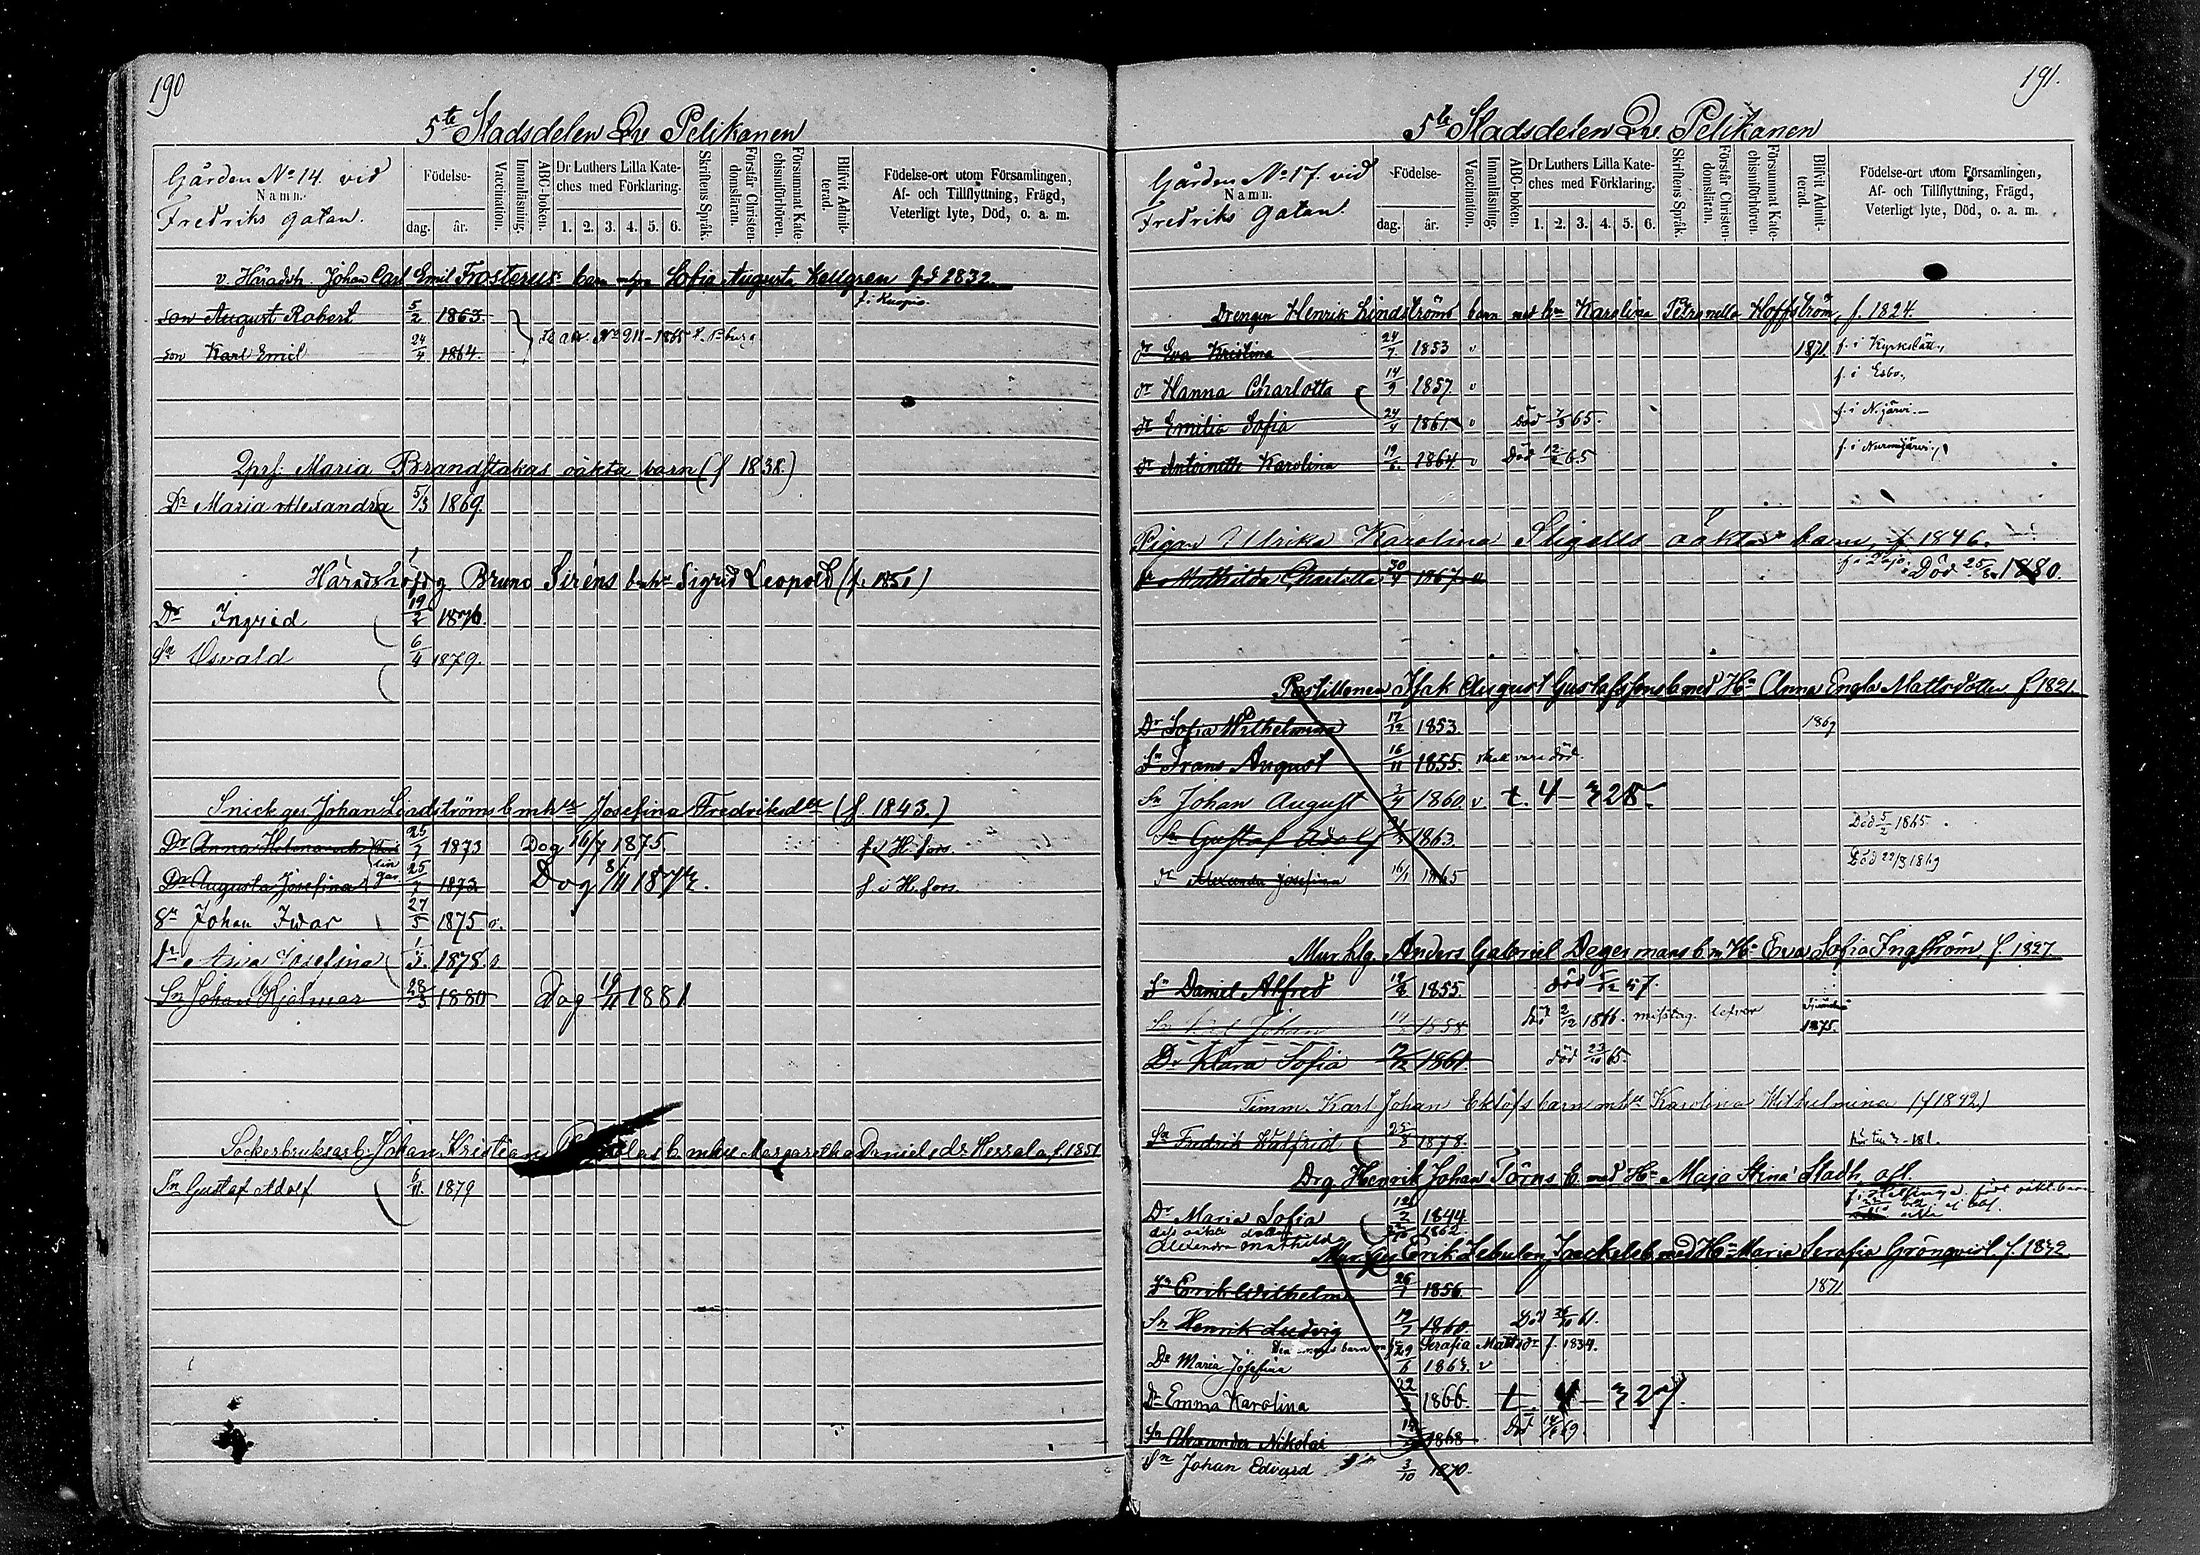 190
5te Stadsdelen Qu Pelikanen
Gården No 14. vid
Namn.
Fredriks gatan.
Födelse-
dag. år.
Vaccination.
Innanläsning.
ABC-boken.
Dr Luthers Lilla Kate-
ches med Förklaring.
1. 2. 3. 4. 5. 6.
Skriftens Språk.
Förstår Christen-
domsläran.
Försummat Kate-
chismiförhören.
Blifvit Admit-
terad.
Födelse-ort utom Församlingen,
Af- och Tillflyttning, Frägd,
Veterligt lyte, Död, o. a. m.
v. Häradsh. Johan Carl Emil Frosterus barn Sofia Augusta Kellgren fd 1832
f. i Kuopio.
son August Robert 5/2 1863.
son Karl Emil 24/4 1864.
Qprf. Maria Brandstakas oäkta barn (f 1838)
Dr Maria Alexandra 5/3 1869.
Häradshöfdg Bruno Siréns b mhu Sigrid Leopold (f. 1851)
Dr Ingrid 19/2 1876
Sn Osvald 6/4 1879.
Snick ges Johan Lindströms b mhu Josefina Fredriksdtr (f. 1843.)
Dr Anna Helena 25/7 1873 Dog 16/7 1875. f. i H. fors.
Dr Augusta Josefina 25/7 1873 Dog 8/11 187 f. i H. fors.
Sn Johan Ivar 27/5 1875 v.
Dr Josefina 1/3 1878.
Sn Johan Hjalmar 28/3 1880 Dog 19/4 1881
Sockerbruksarb. Johan Kristian b mhu Margaretha Danielsdr Herrala f. 1851
Sn Gustaf Adolf 6/11. 1879
191.
5te Stadsdelen Qu. Pelikanen
Gården No 17. vid
Namn.
Fredriks gatan.
Födelse-
dag. år.
Vaccination.
Innanläsning.
ABC-boken.
Dr Luthers Lilla Kate-
ches med Förklaring.
1. 2. 3. 4. 5. 6.
Skriftens Språk.
Förstår Christen-
domsläran.
Försummat Kate-
chismiförhören.
Blifvit Admit-
terad.
Födelse-ort utom Församlingen,
Af- och Tillflyttning, Frägd,
Veterligt lyte, Död, o. a. m.
Drengen Henrik Lindströms barn med hn Karolina Petronella Hoffström, f. 1824.
dr Eva Kristina 24/7 1853 v 1871. f. i Kyrkslätt,
dr Hanna Charlotta 14/9 1857. v f. i Esbo.
dr Emilia Sofia 24/4 1861 v död 7/3 65. f. i N. järvi.
dr Antoinette Karolina 19/ 1864 v Död 12/ 65 f. i Nurmijärvi,
Pigan Ulrika Karolina Stigells oäkta barn, f 1846.
dr Mathilda Charlotta 30/4 1867. Död 25/ 1880.
Postillonen Isak August Gustafssons b med Hn Anna Engla Mattsdotter f 1821.
Dr Sofia Wilhelmina 17/12 1853. 1869
Sn Frans August 16/11 1855. skall vara död.
Sn Johan August 3/4 1860. v. t. 4 - 328.
Sn Gustaf Adolf 1863. Död 5/2 1865.
dr Alexandra Josefina 16/1 1865 Död 22/8 1869
Mur. hlg. Anders Gabriel Degermans b m Hn Eva Sofia Ingström, f 1827.
Sn Daniel Alfred 19/8 1855. död /12 57.
Sn Johan 1858 död 2/12 1866. misstag. lefver 1875.
Dr Klara Sofia 1861. död 23/10 65.
Timm. Karl Johan Eklöfs barn mhu Karolina Wilhelmina (f 1842)
Sn Fredrik Walfrid 25/8 1878.
Drg Henrik Johan Törns b. med Hn Maja Stina Stadh afl.
Dr Maria Sofia 12/2 1844.
dess oäkta dotter 1862
Alexandra Mathilda
Mur Erik Zebulon b med Hn Maria Serafia Grönqvist. f. 1832
Sn Erik Wilhelm 26/1 1856 1871
Sn Henrik Ludvig 19/7 1860 Död 26/10 61.
Serafia Mattsdr f. 1834.
Dr Maria Josefina 29/6 1864. v
Dr Emma Karolina 22/ 1866. t. 4 - 327.
Sn Alexander Nikolai 1868 Död 14/ 69.
Sn Johan Edvard 3/10 1870.